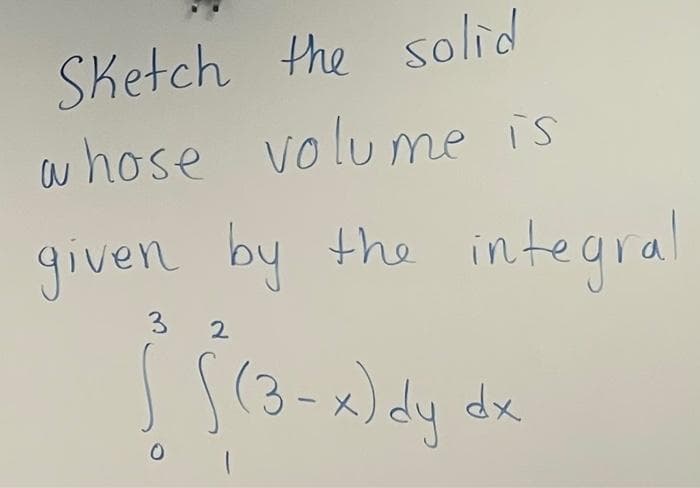 Sketch the solid
whose volume is
given by the integral
3 2
∫ ∫ (3-x) dy dx
0 1